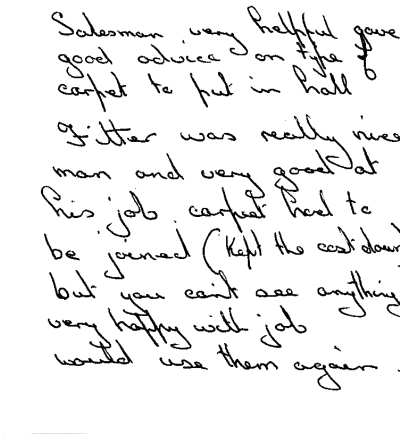 Salesman very helpful gave
good advice on type of
carpet to put in hall
Fitter was really nice
man and very good at
his job. carpet had to
be joined (kept the cost down
but you can't see anything
very happy with job
would use them again.